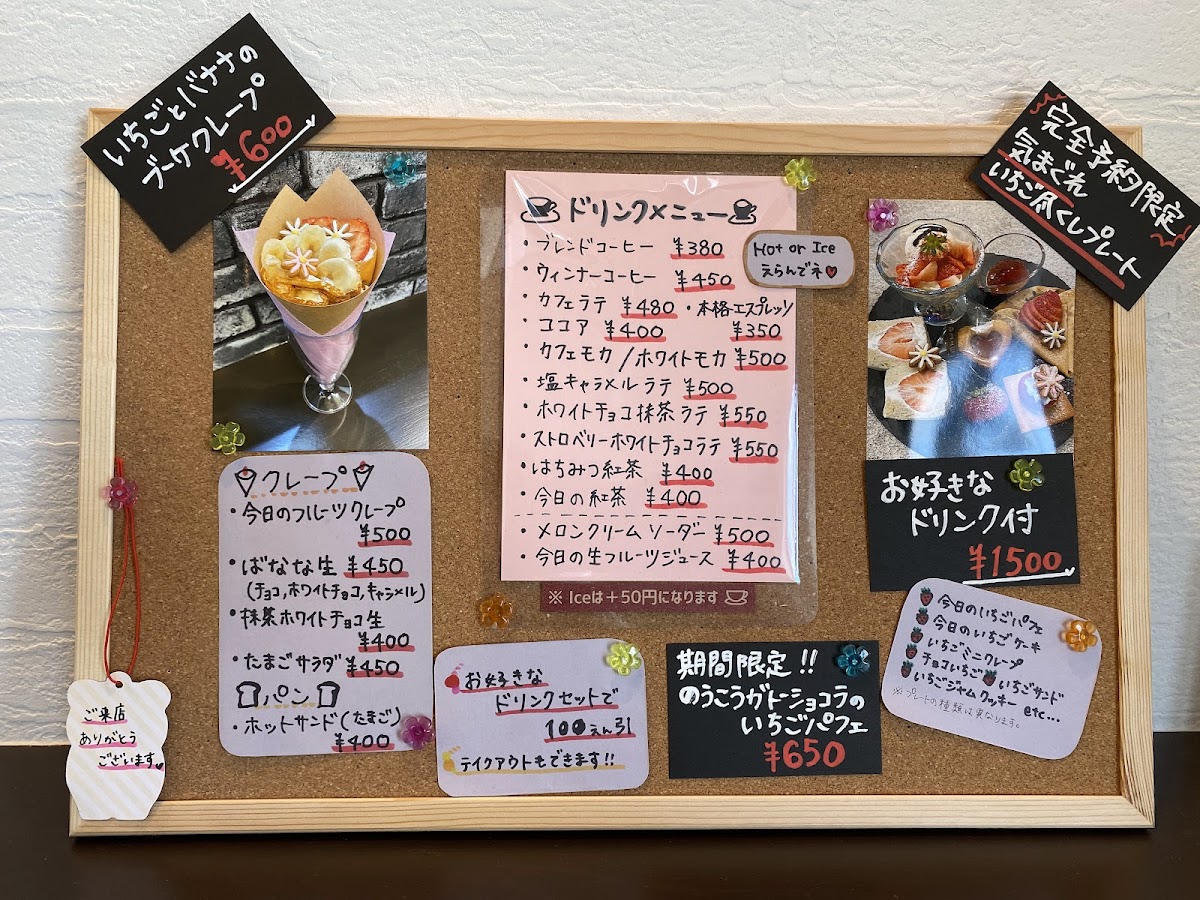 いちごとバナナの
ブーケクレープ
¥600
完全予約限定
気まぐれ
いちご尽くしプレート
ドリンクメニュー
・ブレンドコーヒー ¥380
・ウィンナーコーヒー ¥450
・カフェラテ ¥480 ・本格エスプレッソ
・ココア ¥400 ¥350
・カフェモカ/ホワイトモカ ¥500
・塩キャラメルラテ ¥500
・ホワイトチョコ抹茶ラテ ¥550
・ストロベリーホワイトチョコラテ ¥550
・はちみつ紅茶 ¥400
・今日の紅茶 ¥400
・メロンクリームソーダー ¥500
・今日の生フルーツジュース ¥400
※ Iceは+50円になります
Hot or Ice
えらんでネ
クレープ
・今日のフルーツクレープ
¥500
・ばなな生 ¥450
(チョコ,ホワイトチョコ,キャラメル)
・抹茶ホワイトチョコ生
¥400
・たまごサラダ ¥450
パン
・ホットサンド(たまご)
¥400
お好きな
ドリンク付
¥1500
今日のいちごパフェ
今日のいちごケーキ
いちごミニクレープ
チョコいちご いちごサンド
いちごジャムクッキー etc...
※プレートの種類は異なります。
お好きな
ドリンクセットで
100えん引
テイクアウトもできます!!
期間限定!!
のうこうガトーショコラの
いちごパフェ
¥650
ご来店
ありがとう
ございます